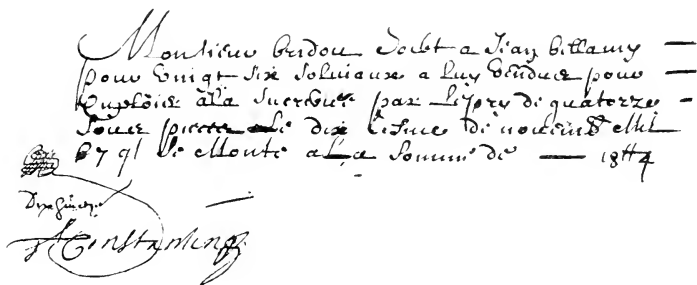 Monsieur bridou doibt a Jean bellamy
pour vingt six soliviaux a luy vendue pour
Employer a la sucrerie par le prix de quatorze
soulz piece Le dix de novemb mil
6791 se Monte a la somme de 18tt4
Constantin